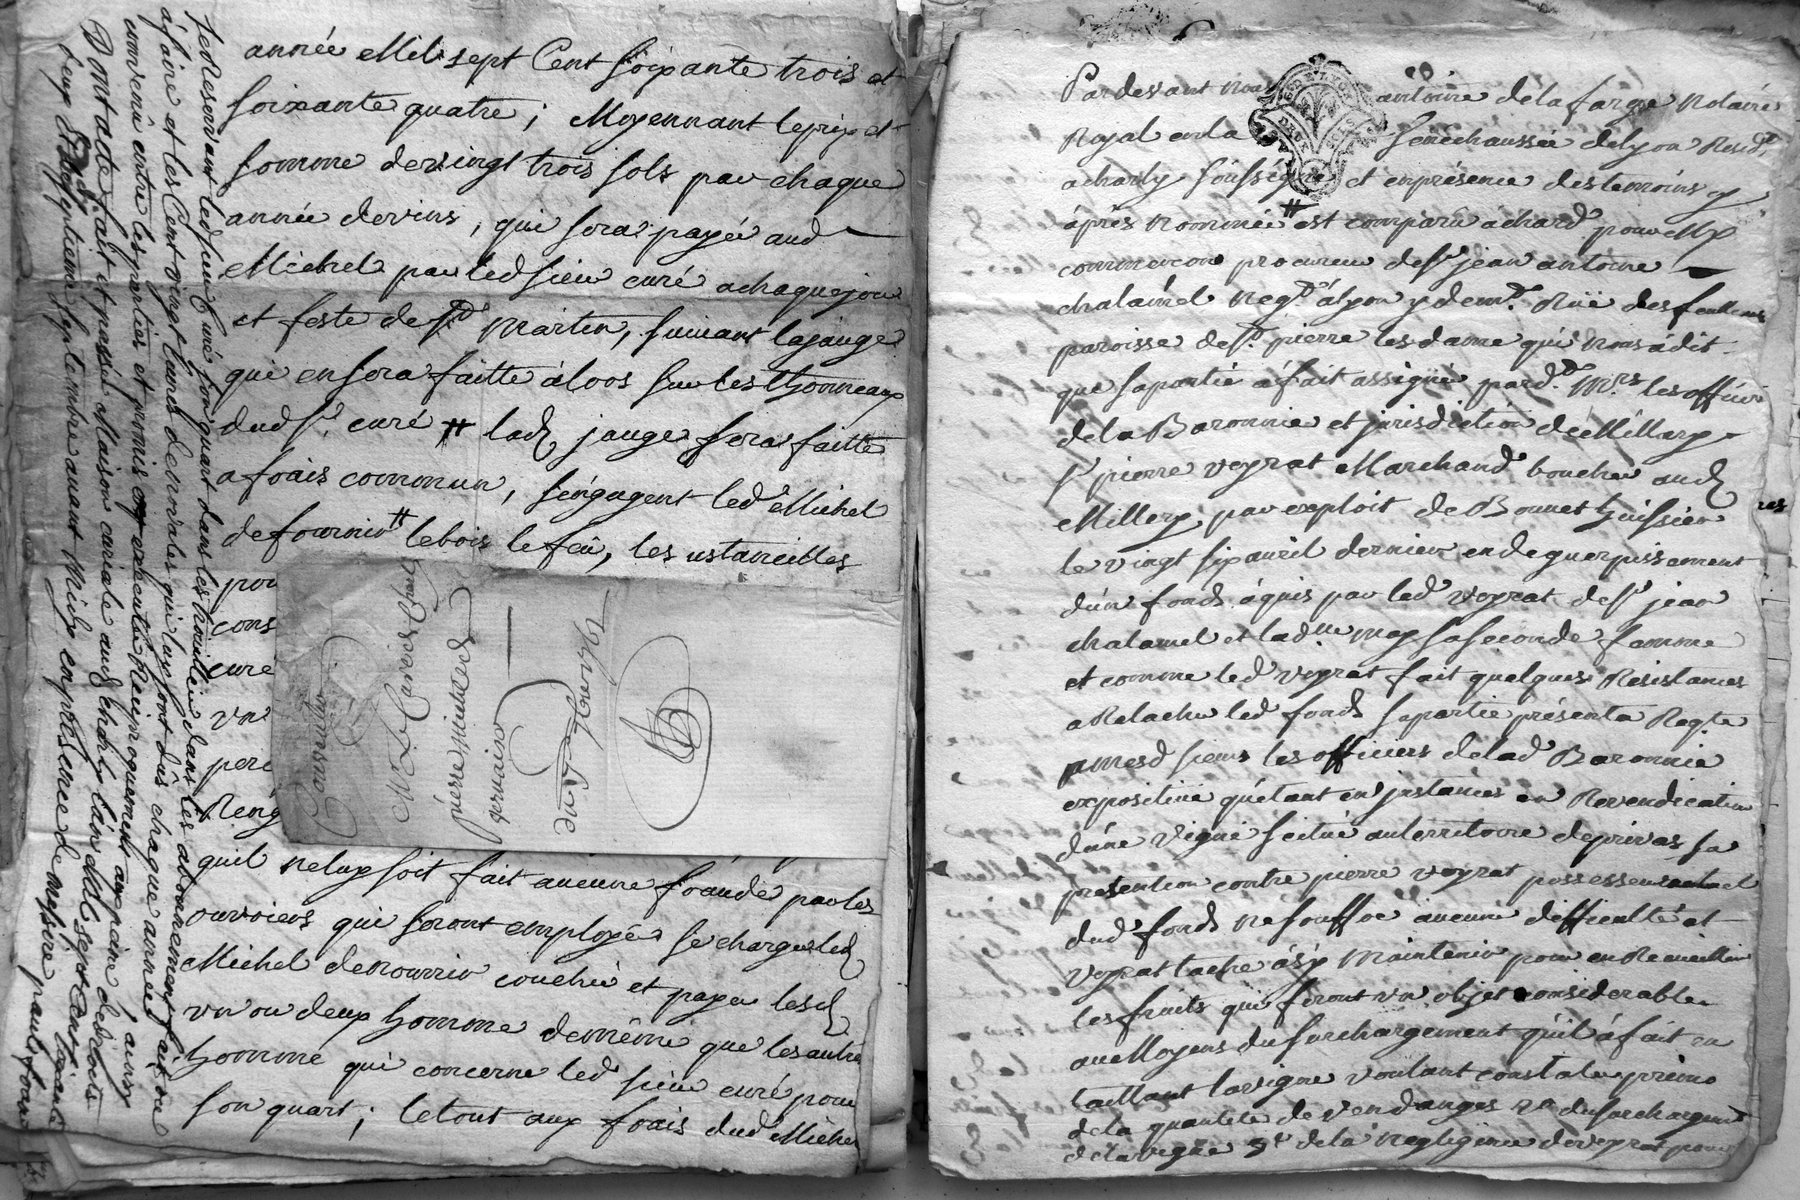 année Mil sept Cent soixante trois et
soixante quatre; Moyennant le prix et
somme de vingt trois sols par chaque
année de vins, qui sera payé aud
Michel par led sieur curé a chaque jour
et feste de St Martin, suivant la jauge
qui en sera faitte alors sur les thonneaux
dud sr. curé # lad jauge sera faitte
a frais commun, s'engagent led Michel
de fournir # le bois le feu, les ustancilles
pou
cons
cure
un
pere
Reng
quil ne luy soit fait aucune fraude par les
ouvriers qui seront employés se charge led
Michel de nourrir coucher et payer lesd
un ou deux homme de même que les autre
homme qui concerne led sieur curé pour
son quart; le tout aux frais dud Michel
se Reservant led sieur curé son quart dans les
afaire et les Cent vingt livres
convenû entre les parties et promis executer Reciproquement a peine de tous
Dont acte fait et passé Maison curiale aud charly l'an Mil sept Cent soixante
deux et le septieme septembre avant Midy en présence de messire paul
Mr Le Curé de Charly
pierre michel
germain
du 7 7bre 1762
Par devant nous antoine delafarge Notaire
Royal en la senechaussée de lyon Resid.t
a charly soussigné et en présence des temoins cy
après nommée # est comparu achard pour Me
commarcon procureur de sr jean antoine
chalamel neg.t à lyon y dem.t Rüe des feuillans
paroisse de St. pierre les dame qui nous a dit
que sa partie a fait assigné pard.t Mrs. les officiers
de la Baronnie et jurisdiction de Millery
sr pierre voyrat Marchand boucher aud
Millery, par exploit de Bonnet huissier
le vingt six avril dernier en deguerpissement
d'un fonds aquis par led voyrat de sr jean
chalamel et lad.lle may sa seconde femme
et comme led voyrat fait quelques Resistances
a Relacher led fonds sa partie présenta Reqte
a mesd sieurs les officiers de lad Baronnie
expositive qu'étant en jnstances en Revendication
d'une vigne scitué au territoire de privas sa
prétention contre pierre voyrat possesseur actuel
dud fonds ne souffre aucune difficulté et
voyrat tache a s'y Maintenir pour en Recueillir
les fruits qui feront un objet considerable
au Moyens du surchargement qu'il a fait en
taillant la vigne voulant constater primo
de la quantité de vendanges 2o du surchargem.t
de la vigne 3o de la negligence de voyrat pour
res